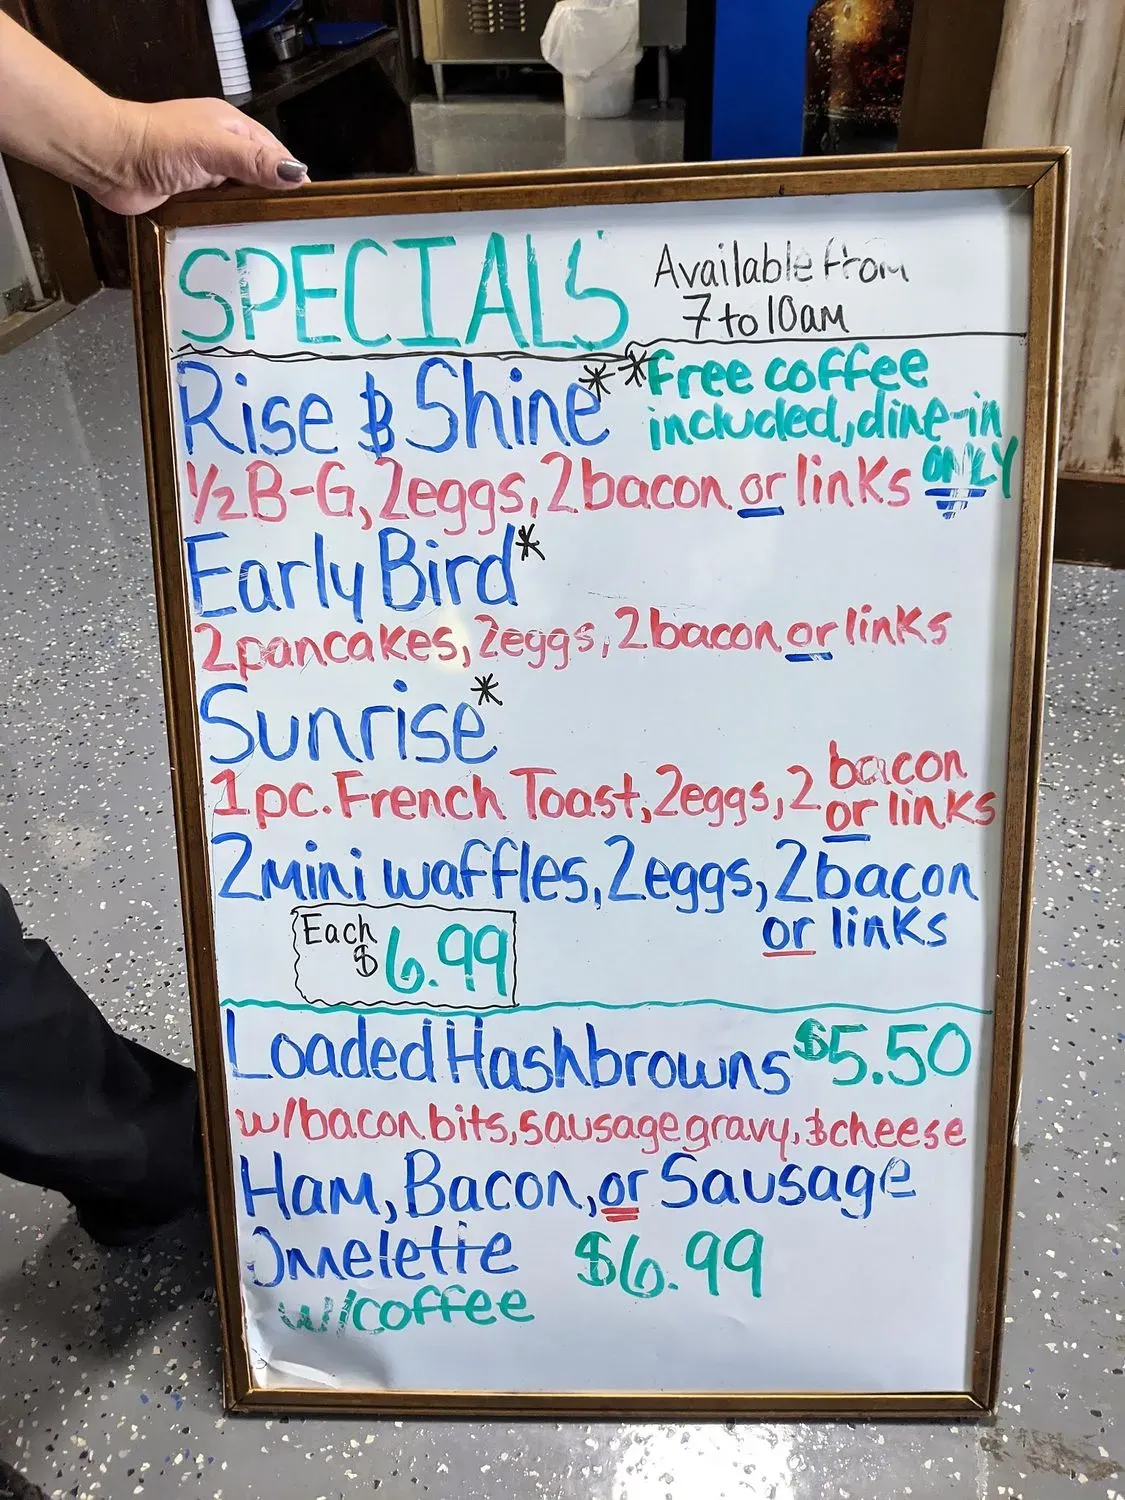 SPECIALS
Available from
7 to 10am
Rise & Shine*
*Free coffee
included, dine-in
ONLY
½ B-G, 2 eggs, 2 bacon or links
Early Bird*
2 pancakes, 2 eggs, 2 bacon or links
Sunrise*
1 pc. French Toast, 2 eggs, 2 bacon
or links
2 mini waffles, 2 eggs, 2 bacon
or links
Each
$6.99
Loaded Hashbrowns $5.50
w/bacon bits, sausage gravy, & cheese
Ham, Bacon, or Sausage
Omelette $6.99
w/coffee